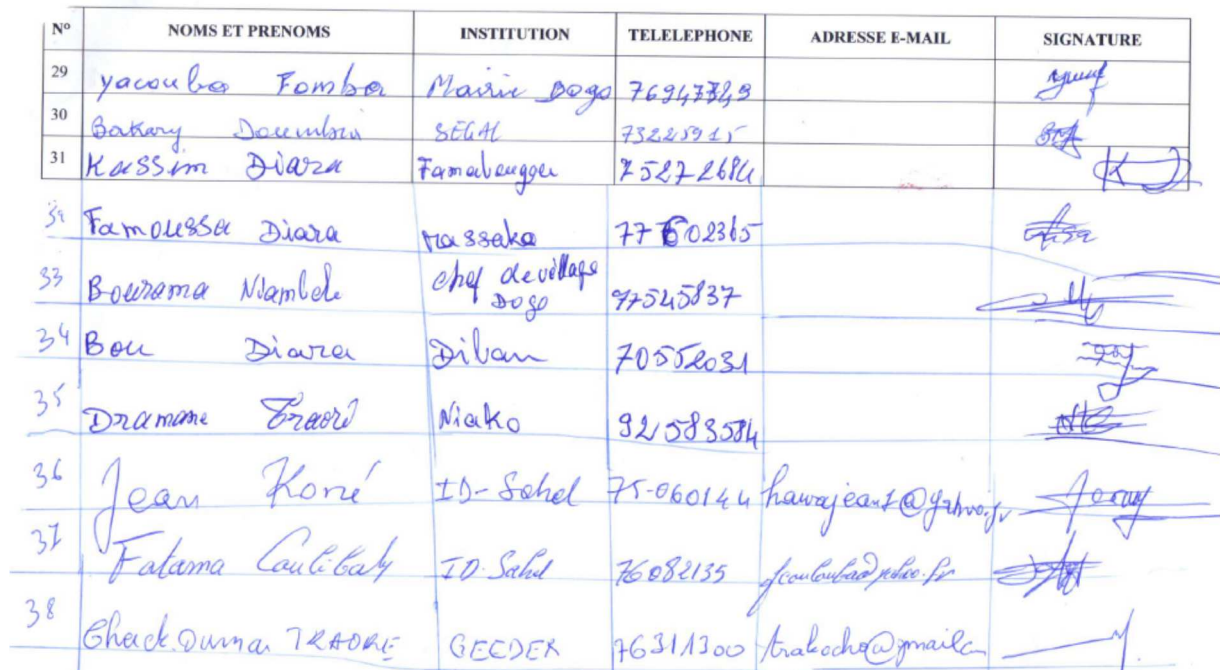 N° NOMS ET PRENOMS INSTITUTION TELELEPHONE ADRESSE E-MAIL SIGNATURE
29 Yacouba Fomba Mairie Dogo 76947349
30 Bakary Doumbia SEGAL 73225915
31 Kassim Diara 75272684
32 Famoussa Diara Massako 77602365
33 Bourama Niambele chef de village Dogo 77545837
34 Bou Diara Diban 70552031
35 Dramane Traoré Niako 92583584
36 Jean Koné ID-Sahel 75-060144
37 Fatama Coulibaly ID-Sahel 76082135
38 Check Ouma TRAORE GEEDER 76311300